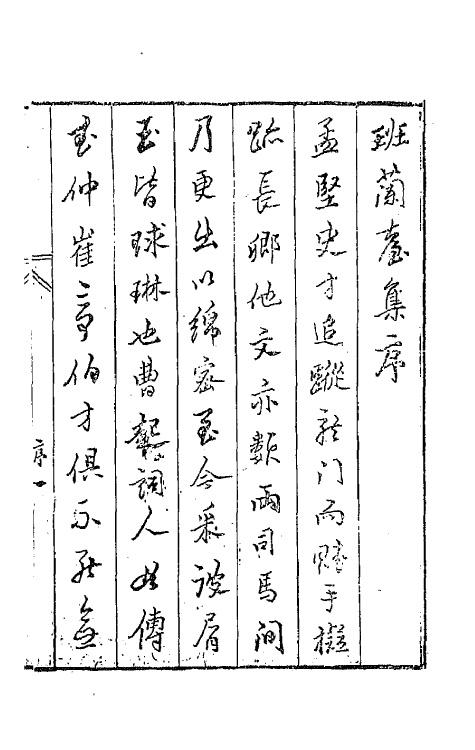 班蘭臺集序
孟堅史才追蹤龍門而賦手擬
跡長卿他文亦類兩司馬間
乃更出以綿密至今采詖屑
玉皆球琳也曹氣詞人如傅
武仲崔亭伯才俱不能無
序一